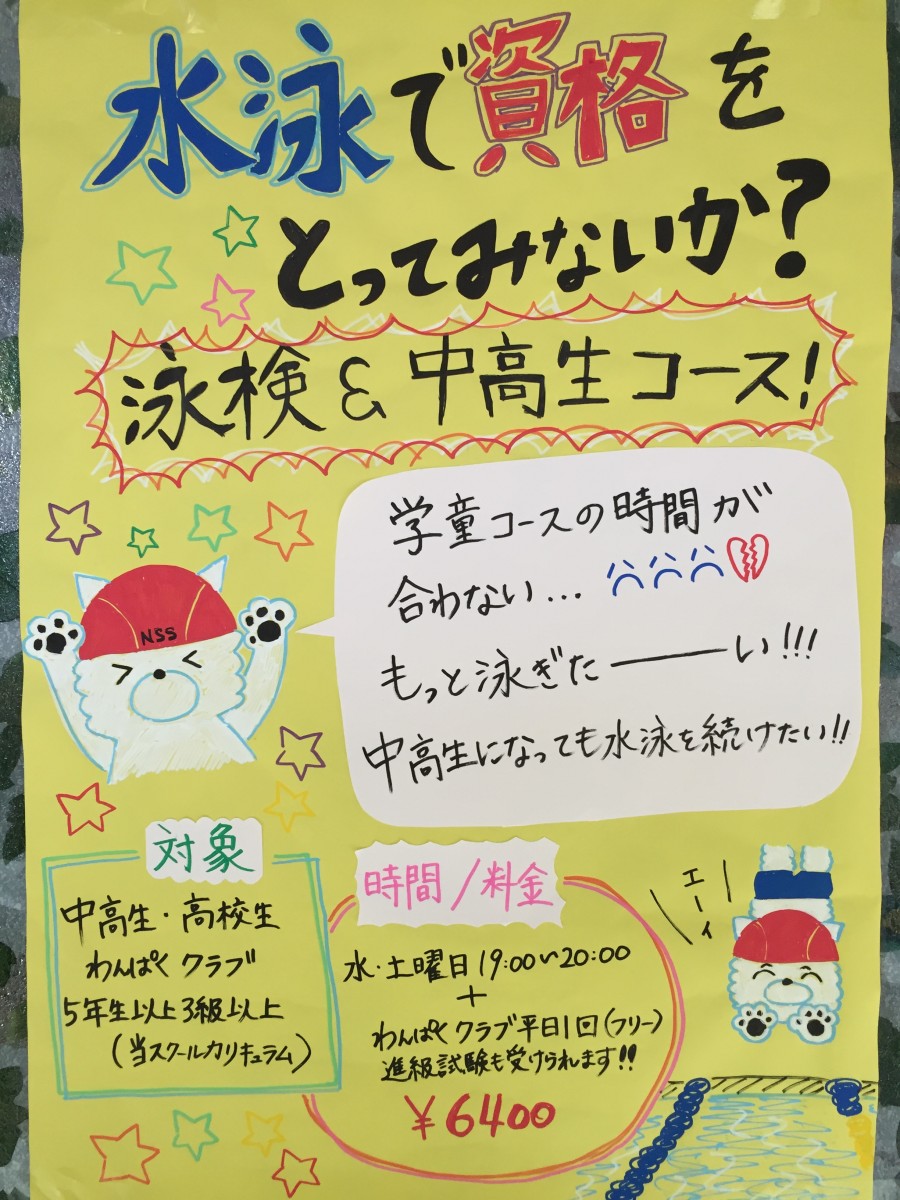 水泳で資格を
とってみないか?
泳検&中高生コース!
学童コースの時間が
合わない...
もっと泳ぎたーーい!!!
中高生になっても水泳を続けたい!!
NSS
対象
中高生・高校生
わんぱくクラブ
5年生以上3級以上
(当スクールカリキュラム)
時間/料金
水・土曜日19:00〜20:00
+
わんぱくクラブ平日1回(フリー)
進級試験も受けられます!!
¥6400
エーイ